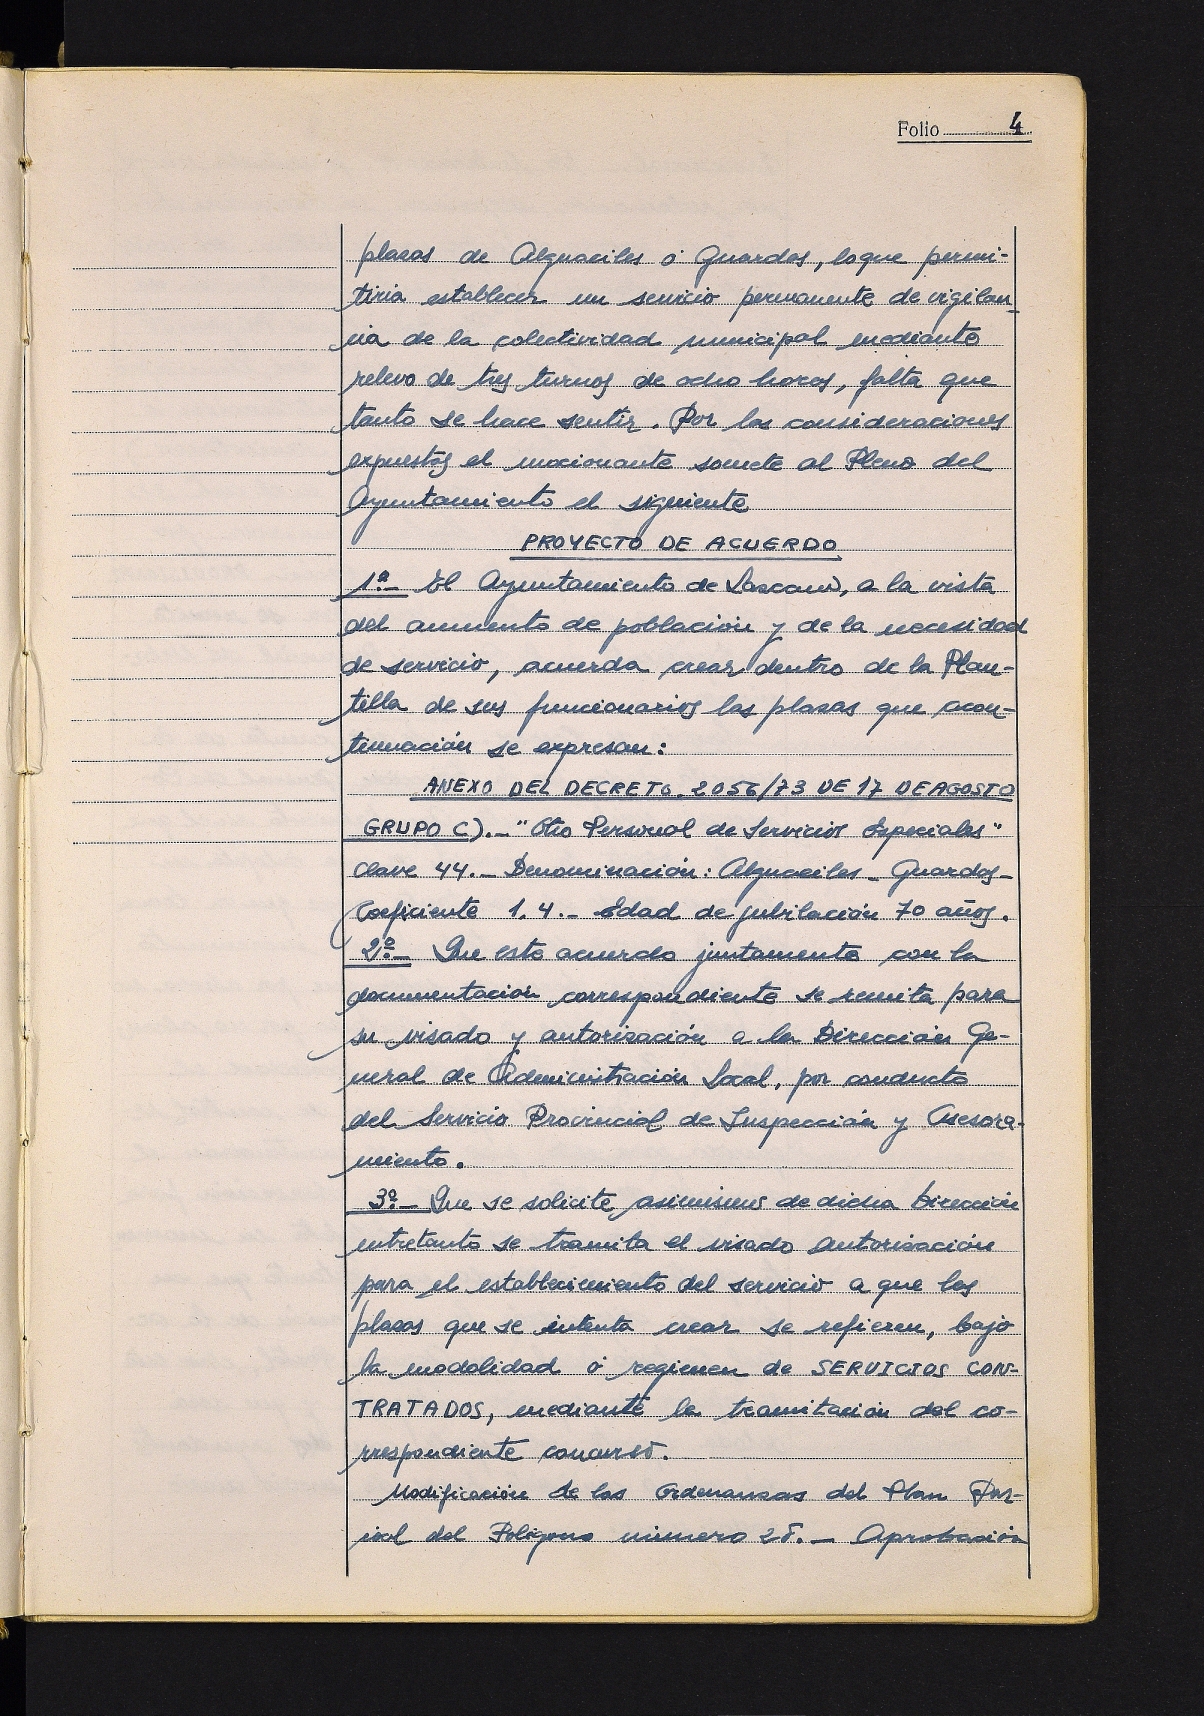 Folio 4
plazas de Alguaciles ó Guardas, lo que permi-
tiria establecer un servicio permanente de vigilan-
cia de la colectividad municipal mediante
relevo de tres turnos de ocho horas, falta que
tanto se hace sentir. Por las consideraciones
expuestas el mocionante somete al Pleno del
Ayuntamiento el siguiente
PROYECTO DE ACUERDO
1º.- El Ayuntamiento de Lazcano, a la vista
del aumento de población y de la necesidad
de servicio, acuerda crear dentro de la Plan-
tilla de sus funcionarios las plazas que acon-
tinuación se expresan:
ANEXO DEL DECRETO. 2056/73 DE 17 DE AGOSTO
GRUPO C).- "Otro Personal de Servicios Especiales"
Clave 44.- Denominación: Alguaciles - Guardas-
Coeficiente 1,4.- Edad de jubilación 70 años.
2º.- Que este acuerdo juntamente con la
documentación correspondiente se remita para
su visado y autorización a la Dirección Ge-
neral de Administración Local, por conducto
del Servicio Provincial de Inspección y Asesora-
miento.
3º.- Que se solicite asimismo de dicha Dirección
entretanto se tramita el visado autorización
para el establecimiento del servicio a que las
plazas que se intenta crear se refieren, bajo
la modalidad ó regimen de SERVICIOS CON-
TRATADOS, mediante la tramitación del co-
rrespondiente concurso.
Modificación de las Ordenanzas del Plan Par-
cial del Poligono número 28.- Aprobación